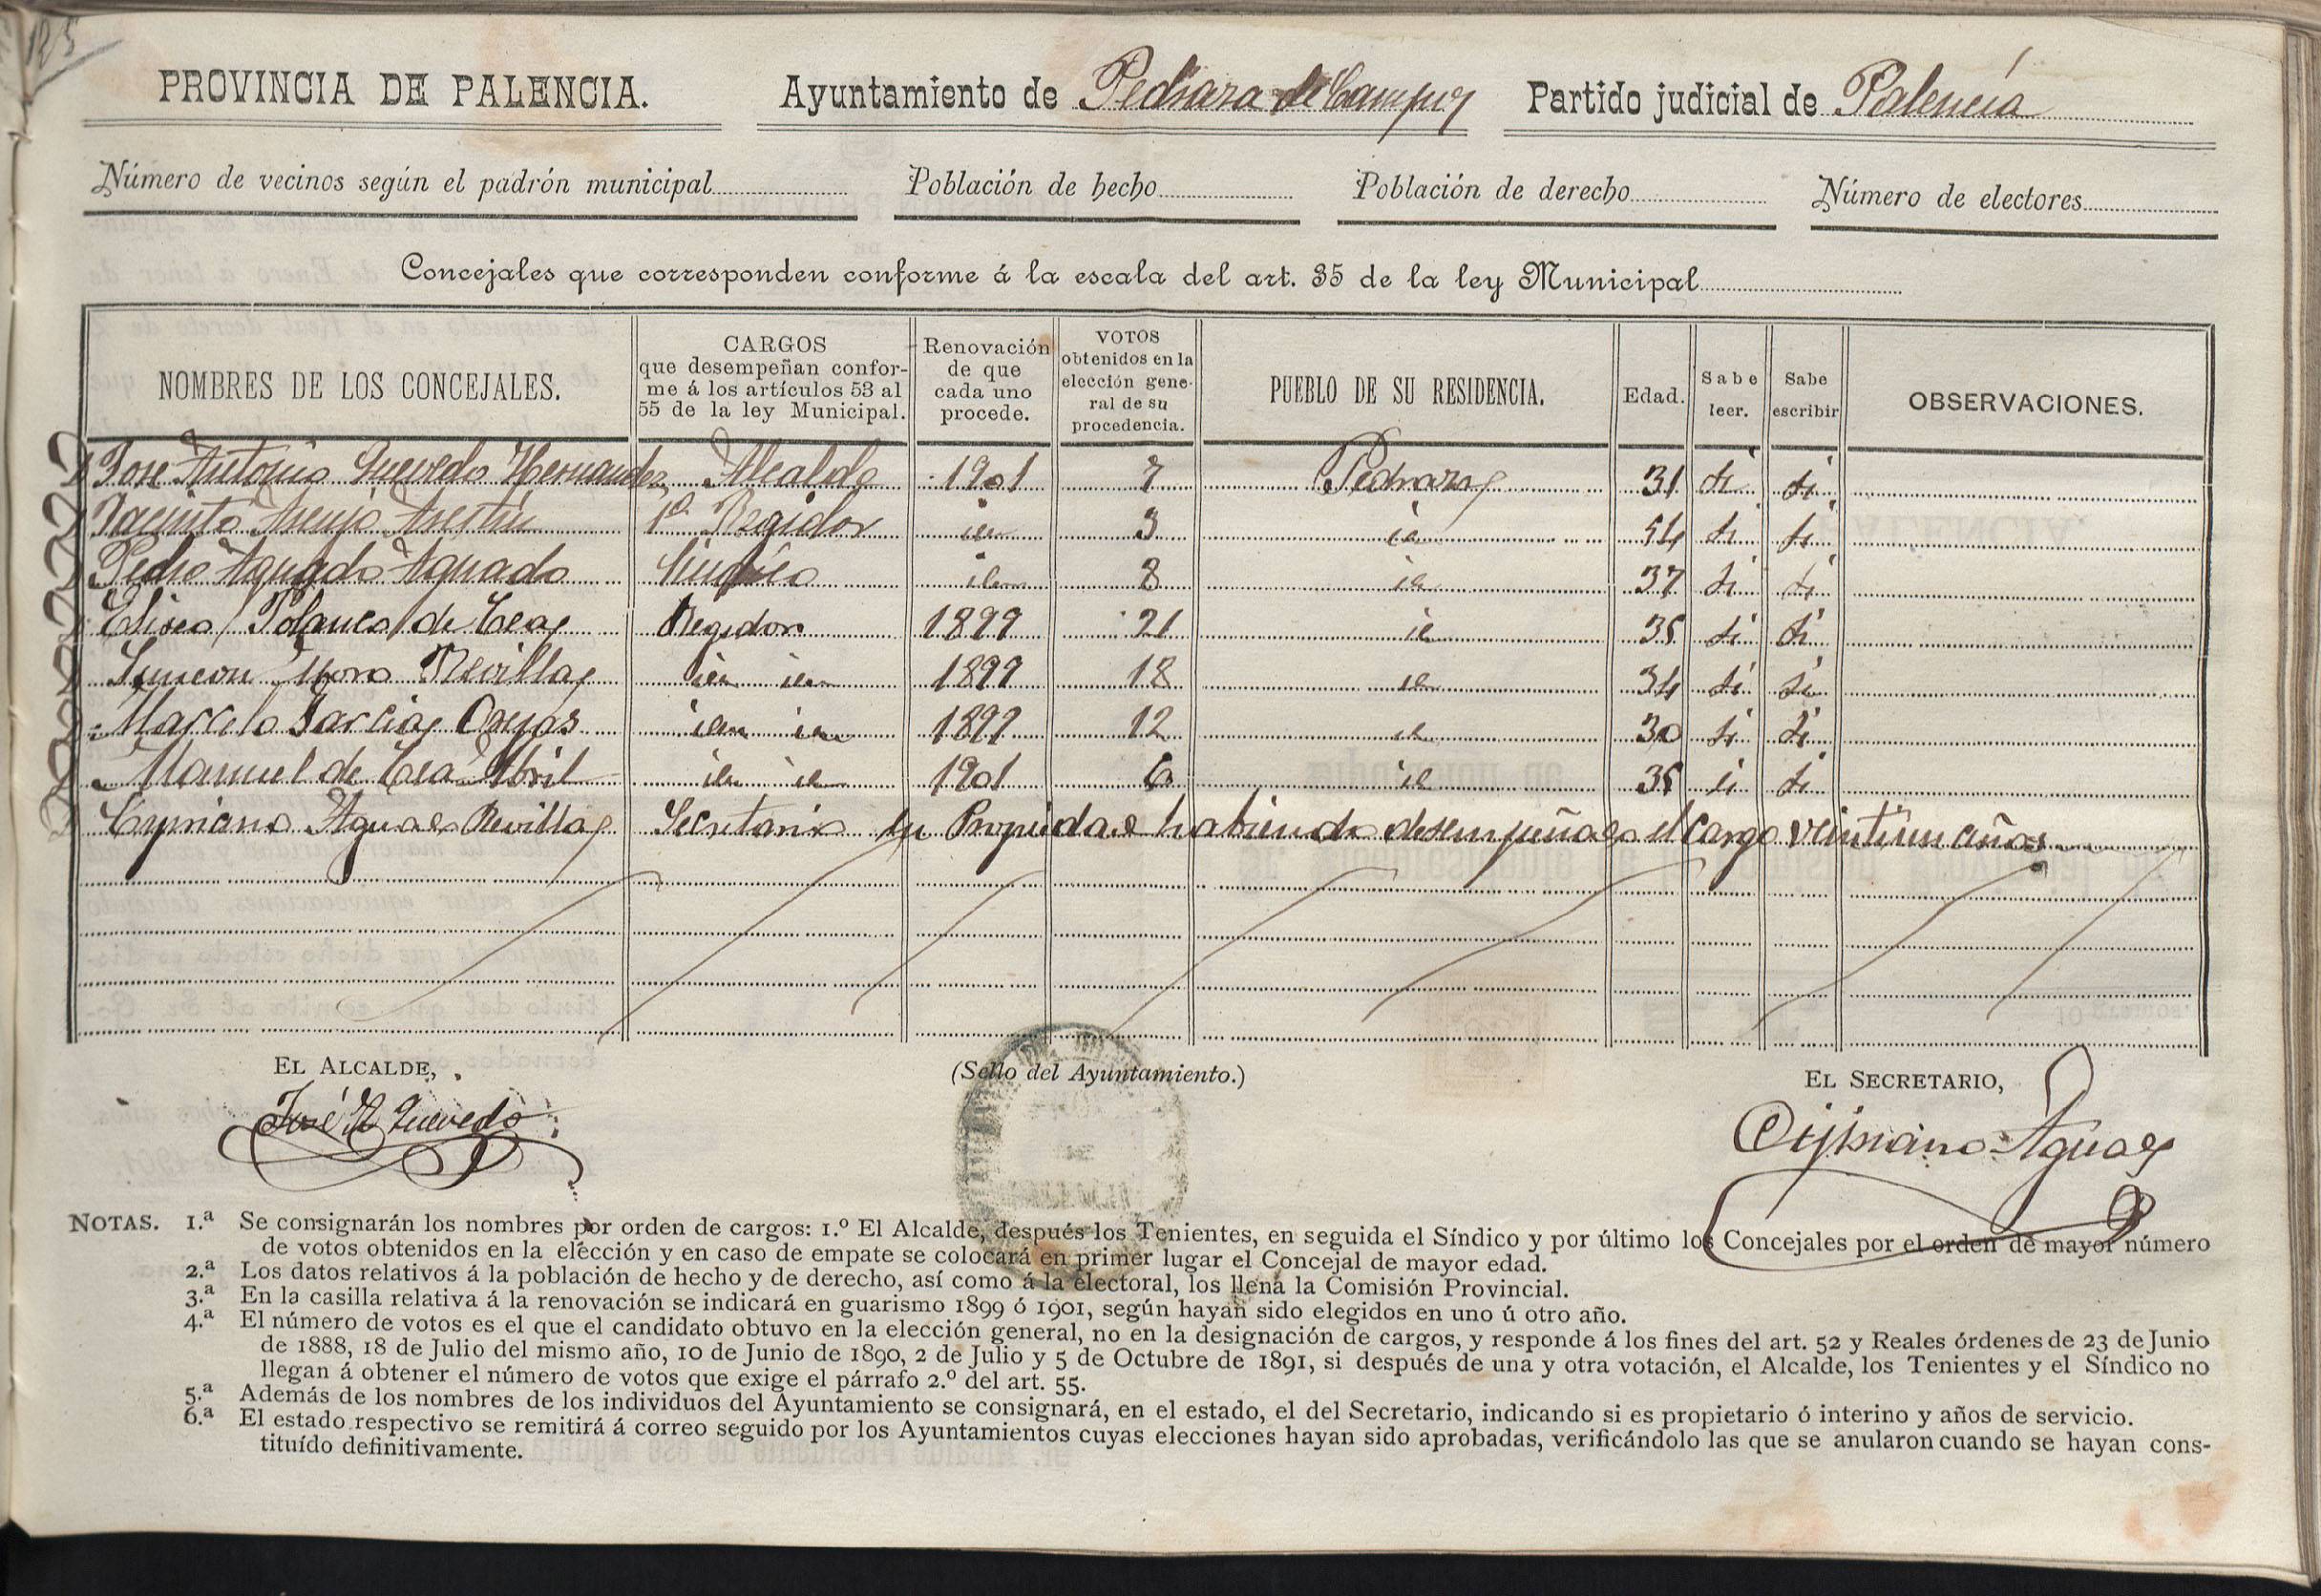 125
PROVINCIA DE PALENCIA. Ayuntamiento de Pedraza de Campos Partido judicial de Palencia
Número de vecinos según el padrón municipal Población de hecho Población de derecho Número de electores
Concejales que corresponden conforme á la escala del art. 35 de la ley Municipal
NOMBRES DE LOS CONCEJALES. CARGOS que desempeñan confor- me á los artículos 53 al 55 de la ley Municipal. Renovación de que cada uno procede. VOTOS obtenidos en la elección gene- ral de su procedencia. PUEBLO DE SU RESIDENCIA. Edad. Sabe leer. Sabe escribir OBSERVACIONES.
Jose Antonio Quevedo Hernandez Alcalde 1901 7 Pedraza 31 si si
Jacinto 1º Regidor id 3 id 54 si si
Pedro Aguado Aguado Sindico id 8 id 37 si si
Eliseo Polanco de Cea Regidor 1899 21 id 35 si si
Simeon Mora Revilla id id 1899 18 id 34 si si
Marcelo Garcia Orejas id id 1899 12 id 30 si si
Manuel de Cea Abril id id 1901 6 id 35 si si
Cipriano Aguado Revilla Secretario en Propiedad habiendo desempeñado el cargo veintiun años
EL ALCALDE, (Sello del Ayuntamiento.) EL SECRETARIO,
José A Quevedo Cipriano Aguado
NOTAS. 1.ª Se consignarán los nombres por orden de cargos: 1.º El Alcalde, después los Tenientes, en seguida el Síndico y por último los Concejales por el orden de mayor número
de votos obtenidos en la elección y en caso de empate se colocará en primer lugar el Concejal de mayor edad.
2.ª Los datos relativos á la población de hecho y de derecho, así como á la electoral, los llena la Comisión Provincial.
3.ª En la casilla relativa á la renovación se indicará en guarismo 1899 ó 1901, según hayan sido elegidos en uno ú otro año.
4.ª El número de votos es el que el candidato obtuvo en la elección general, no en la designación de cargos, y responde á los fines del art. 52 y Reales órdenes de 23 de Junio
de 1888, 18 de Julio del mismo año, 10 de Junio de 1890, 2 de Julio y 5 de Octubre de 1891, si después de una y otra votación, el Alcalde, los Tenientes y el Síndico no
llegan á obtener el número de votos que exige el párrafo 2.º del art. 55.
5.ª Además de los nombres de los individuos del Ayuntamiento se consignará, en el estado, el del Secretario, indicando si es propietario ó interino y años de servicio.
6.ª El estado respectivo se remitirá á correo seguido por los Ayuntamientos cuyas elecciones hayan sido aprobadas, verificándolo las que se anularon cuando se hayan cons-
tituído definitivamente.